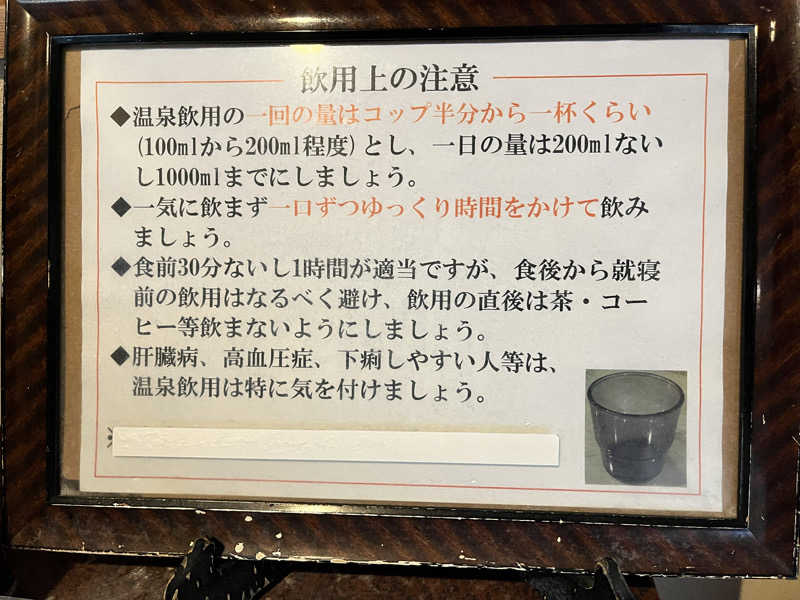 飲用上の注意
◆温泉飲用の一回の量はコップ半分から一杯くらい
(100mlから200ml程度)とし、一日の量は200mlない
し1000mlまでにしましょう。
◆一気に飲まず一口ずつゆっくり時間をかけて飲み
ましょう。
◆食前30分ないし1時間が適当ですが、食後から就寝
前の飲用はなるべく避け、飲用の直後は茶・コー
ヒー等飲まないようにしましょう。
◆肝臓病、高血圧症、下痢しやすい人等は、
温泉飲用は特に気を付けましょう。